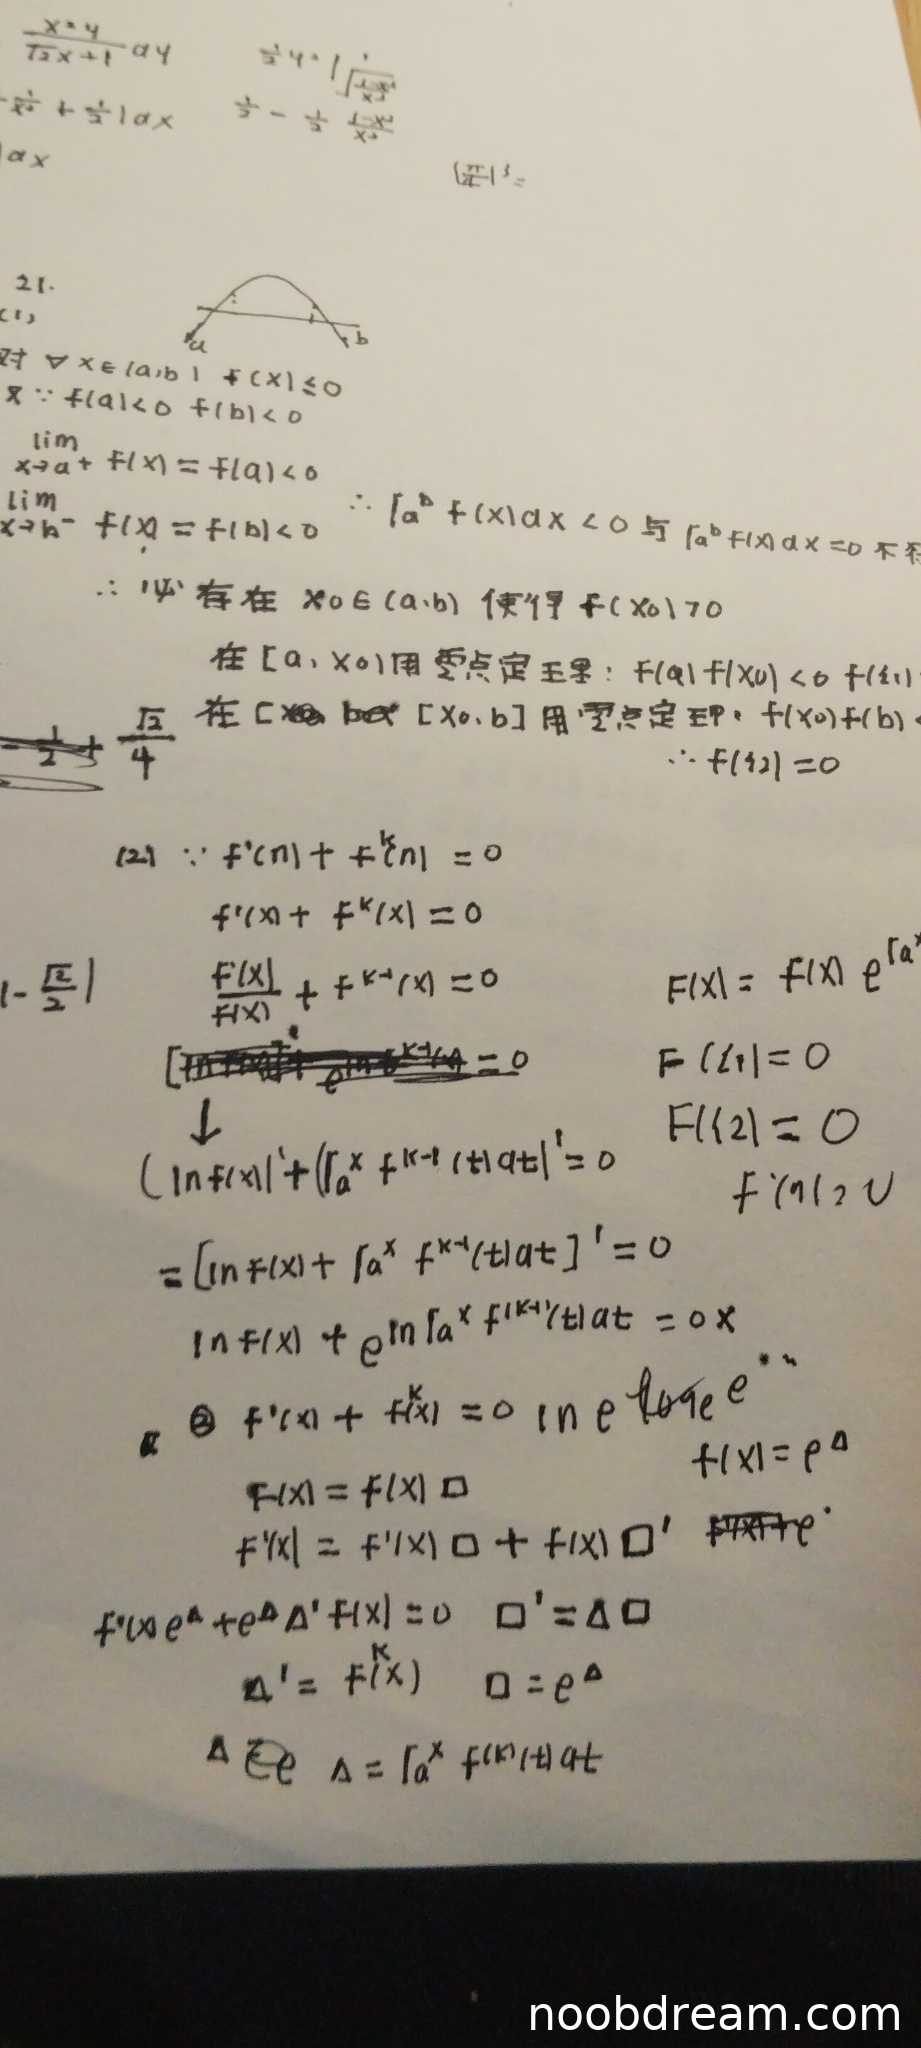 x²y
√2x+1 dy
1/2 y²
+ 1/2 | dx
1/2 - 1/2 1-x²/x²
dx
|π/4|³=
21.
(1)
a b
对 ∀ x∈(a,b) f(x)≤0
又∵ f(a)<0 f(b)<0
lim x→a+ f(x) = f(a)<0
lim x→b- f(x) = f(b)<0
∴ ∫a^b f(x)dx <0 与 ∫a^b f(x)dx =0 不符
∴ 必存在 x0∈(a,b) 使得 f(x0)>0
在[a,x0)用零点定理: f(a)f(x0)<0 f(ξ1)
在 [x0,b]用零点定理. f(x0)f(b)<
∴ f(ξ2)=0
- 1/2 + √2/4
(2) ∵ f'(η)+f^k(η) =0
f'(x)+ f^k(x)=0
f'(x)/f(x) + f^k-1(x)=0
1- √2/2 |
F(x)= f(x) e^∫a^x
=0
F(ξ1)=0
F(ξ2)=0
↓
(lnf(x))'+(∫a^x f^k-1(t)dt)'=0
F'(η)=0
=[lnf(x)+ ∫a^x f^k-1(t)dt]'=0
lnf(x) + e^ln∫a^x f^(k-1)(t)dt =0 x
② f'(x)+ f^k(x) =0 ln e loge e
f(x)= e^Δ
F(x)= f(x) □
F'(x)= f'(x) □ + f(x) □'
f'(x)e^Δ+e^Δ Δ' f(x)=0 □'=Δ□
Δ'= f^k(x) □=e^Δ
Δ Δ= ∫a^x f^(k)(t)dt
noobdream.com